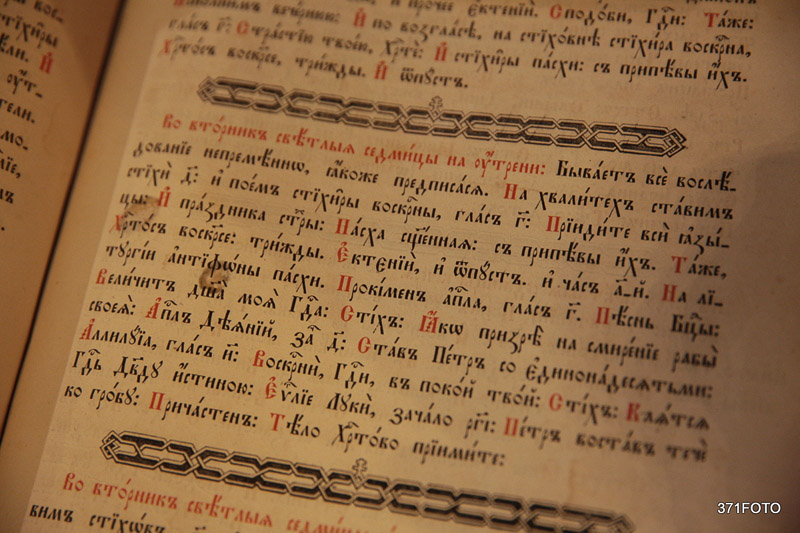 и҆ прочее є҆ктенїи̑. Сподо́би, гдⷭ҇и: Та́же:
гла́съ г҃: Стра́стїю твое́ю, хрⷭ҇тѐ: И҆ по во́згласѣ, на стїхо́внѣ стїхи̑ра воскрⷭ҇на,
Хрⷭ҇то́съ воскре́се, три́жды. И҆ стїхи̑ры па́схи: съ припѣ̑вы и҆́хъ.
И҆ ѿпꙋ́стъ.
Во вто́рникъ свѣ́тлыѧ седми́цы на ᲂу҆́трени: Быва́етъ всѐ вослѣ́-
дованїе непремѣ́ннѡ, ꙗ҆́коже предписа́сѧ. На хвали́техъ ста́вимъ
стїхѝ д҃: и҆ пое́мъ стїхи̑ры воскрⷭ҇ны, гла́съ г҃: Прїиди́те всѝ ꙗ҆зы́-
цы: И҆ пра́здника стⷯры: Па́сха сщ҃е́ннаѧ: съ припѣ̑вы и҆́хъ. Та́же,
Хрⷭ҇то́съ воскре́се: три́жды. Є҆ктенїи̑, и҆ ѿпꙋ́стъ. и҆ ча́съ а҃-й. На лї-
тꙋргі́и а҆нтїфѡ́ны па́схи. Проки́менъ а҆пⷭ҇ла, гла́съ г҃. Пѣ́снь бцⷣы:
Вели́читъ дш҃а̀ моѧ̀ гдⷭ҇а: Сті́хъ: Ꙗ҆́кѡ призрѣ̀ на смире́нїе рабы̀
своеѧ̀: А҆пⷭ҇лъ дѣѧ́нїй, заⷱ҇ д҃: Ста́въ пе́тръ со є҆динона́десѧтьми:
А҆ллилꙋ́їа, гла́съ и҃: Воскрⷭ҇нѝ, гдⷭ҇и, въ поко́й тво́й: Сті́хъ: Клѧ́тсѧ
гдⷭ҇ь дв҃дꙋ и҆́стиною: Є҆ѵⷢ҇лїе лꙋкѝ, зача́ло рг҃і: Пе́тръ воста́въ течѐ
ко гро́бꙋ: Прича́стенъ: Тѣ́ло хрⷭ҇то́во прїими́те:
Во вто́рникъ свѣ́тлыѧ седми́цы
вимъ стїхѡ́въ
371FOTO